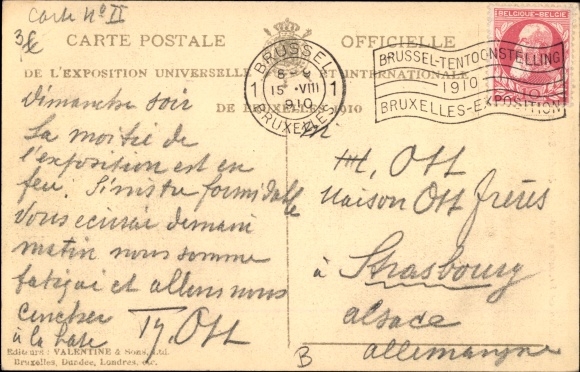 Carte No II
CARTE POSTALE OFFICIELLE
DE L'EXPOSITION UNIVERSELLE ET INTERNATIONALE
DE BRUXELLES 1910
BELGIQUE-BELGIË
BRUSSEL
1 15 -VIII 1
1910
BRUXELLES
BRUSSEL-TENTOONSTELLING
1910
BRUXELLES-EXPOSITION
Dimanche soir
La moitié de
l'exposition est en
feu. Sinistre formidable
Vous écrirai demain
matin nous somme
fatigué et allons nous
coucher
à la hate
Th. Ott
M. Ott
Maison Ott Frères
à Strasbourg
Alsace
Allemangne
B
Editeurs: VALENTINE & Sons, Ltd.
Bruxelles, Dundee, Londres, etc.